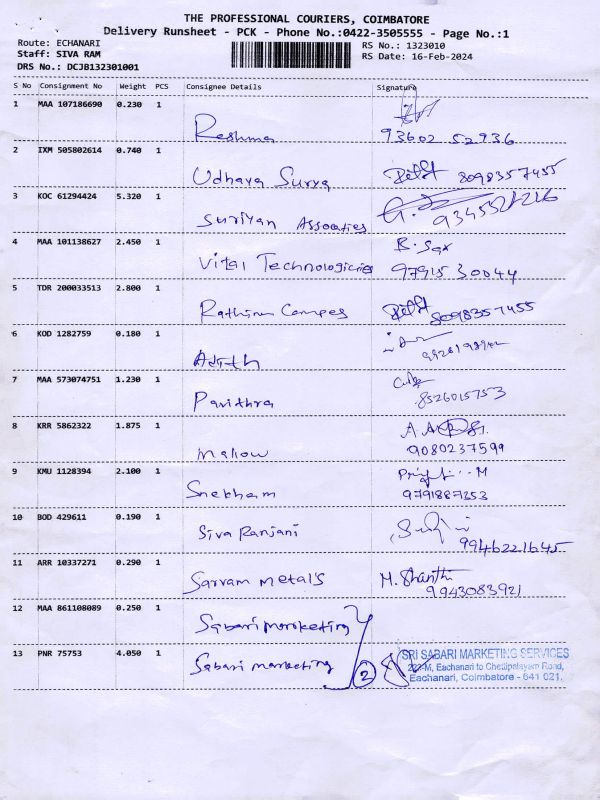 THE PROFESSIONAL COURIERS, COIMBATORE
Delivery Runsheet - PCK - Phone No.:0422-3505555 - Page No.:1
Route: ECHANARI RS No.: 1323010
Staff: SIVA RAM RS Date: 16-Feb-2024
DRS No.: DCJB132301001
S No Consignment No Weight PCS Consignee Details Signature
1 MAA 107186690 0.230 1 Reshma 93602 52936
2 IXM 505802614 0.740 1 Udhaya Surya 8098357455
3 KOC 61294424 5.320 1 Suriyan Associates
4 MAA 101138627 2.450 1 Vital Technologicies 9791530044
5 TDR 200033513 2.800 1 Rathinam Campes 8098357455
6 KOD 1282759 0.180 1
7 MAA 573074751 1.230 1 Pavithra 8526015753
8 KRR 5862322 1.875 1 Mallow 9080237599
9 KMU 1128394 2.100 1 Snekham 9791887253
10 BOD 429611 0.190 1 Siva Ranjani 9946221645
11 ARR 10337271 0.290 1 Sarvam metals M. Shanthi
9943083921
12 MAA 861108089 0.250 1 Sabari marketing
13 PNR 75753 4.050 1 Sabari marketing 2
SRI SABARI MARKETING SERVICES
Eachanari to Chettipalayam Road,
Eachanari, Coimbatore - 641 021.